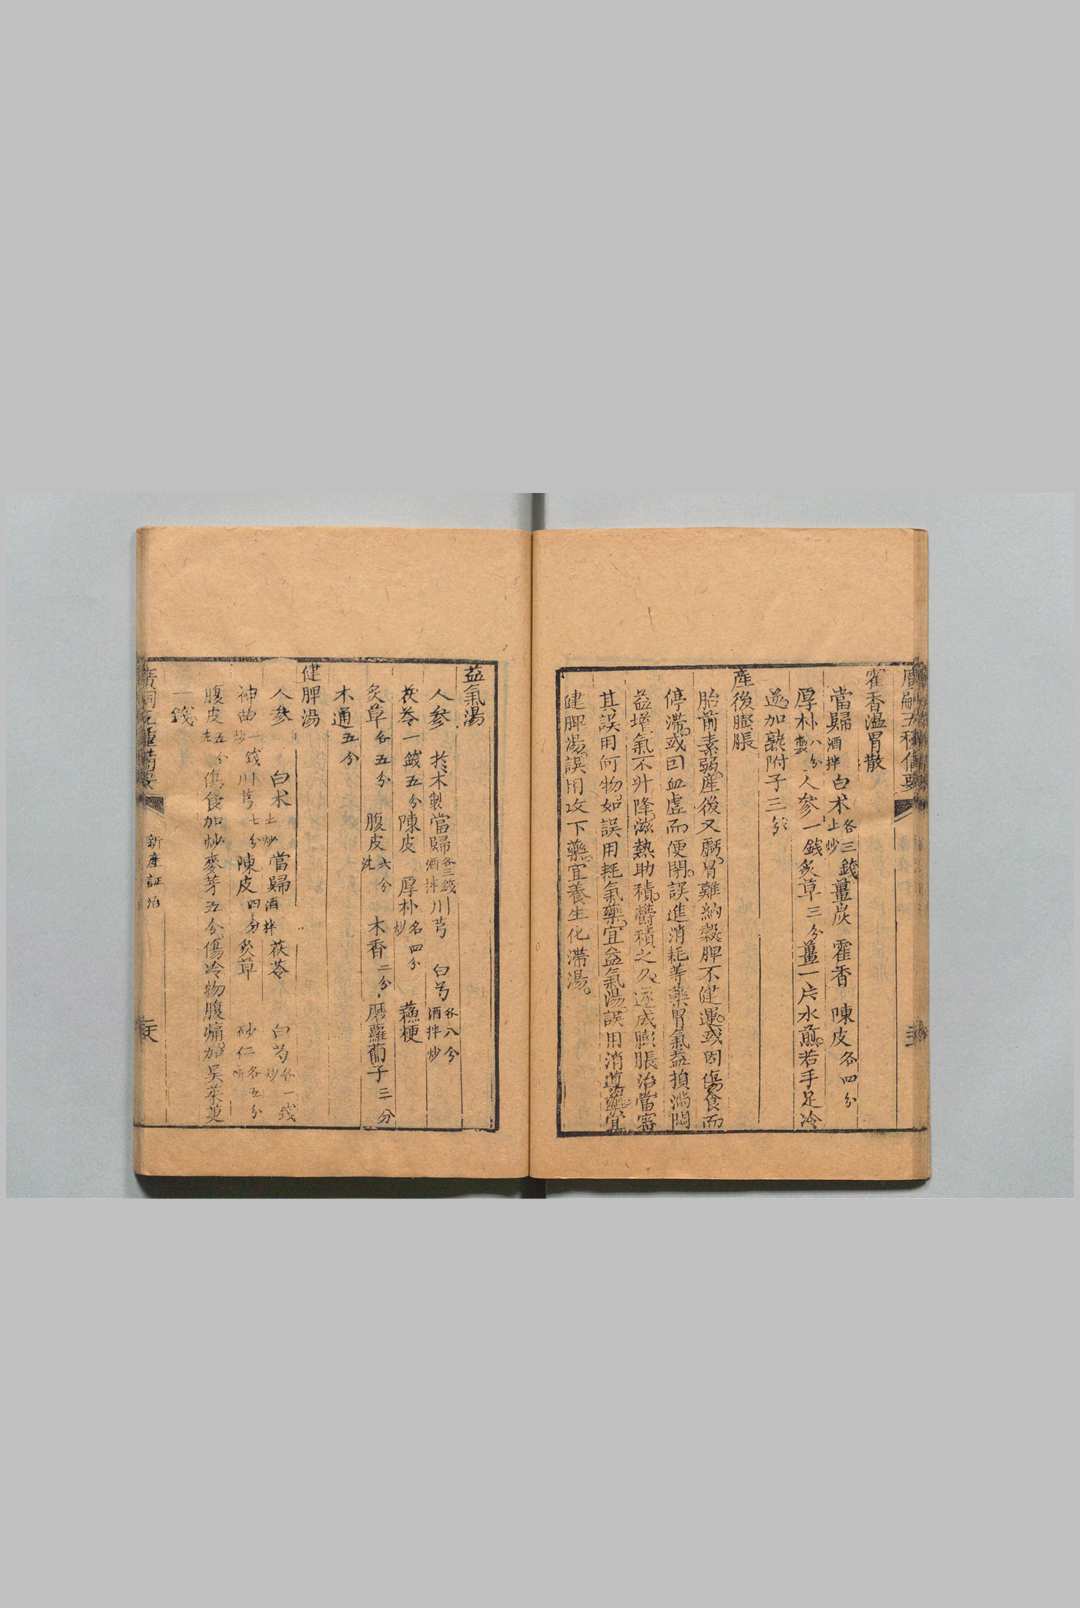 廣嗣五種備要
藿香溫胃散
當歸酒拌 白术土炒各三錢薑炭 藿香 陳皮各四分
厚朴製八分人參一錢炙草三分薑一片水煎若手足冷
甚加熟附子三分
產後膨脹
胎前素弱產後又虧胃難納穀脾不健運或因傷食而
停滯或因血虛而便閉誤進消耗等藥胃氣益損滿悶
益增氣不升降滋熱助積鬱積之久遂成膨脹治當審
其誤用何物如誤用耗氣藥宜益氣湯誤用消導藥宜
健脾湯誤用攻下藥宜養生化滯湯
益氣湯
人參 於术製當歸酒拌各三錢川芎 白芍酒拌炒各八分
茯苓一錢五分陳皮 厚朴炒各四分 蘇梗
炙草各五分 腹皮洗六分 木香二分磨蘿蔔子三分
木通五分
健脾湯
人參 白术土炒 當歸酒拌 茯苓 白芍炒各一錢
神曲炒一錢川芎七分陳皮四分炙草 砂仁研各五分
腹皮洗五分傷食加炒麥芽五分傷冷物腹痛加吳茱萸
一錢
廣嗣五種備要
新產証治